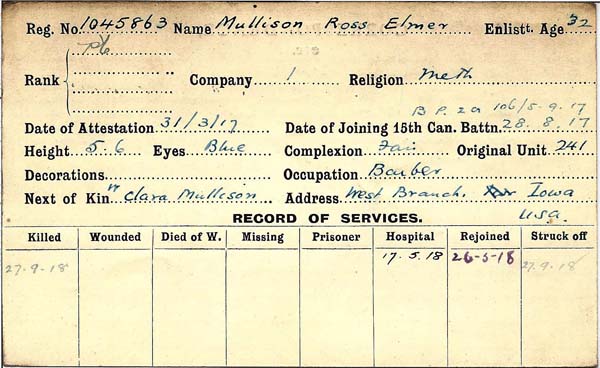 Reg. No. 1045863 Name Mullison Ross Elmer Enlistt. Age 32
Pte
Rank Company 1 Religion Meth
B.P. 2a 106/5-9.17
Date of Attestation 31/3/17 Date of Joining 15th Can. Battn. 28.8.17
Height 5.6 Eyes Blue Complexion Fair Original Unit 241
Decorations Occupation Barber
Next of Kin W Clara Mullison Address West Branch, Iowa
USA.
RECORD OF SERVICES.
Killed Wounded Died of W. Missing Prisoner Hospital Rejoined Struck off
27-9-18 17.5.18 26-5-18 27.9.18